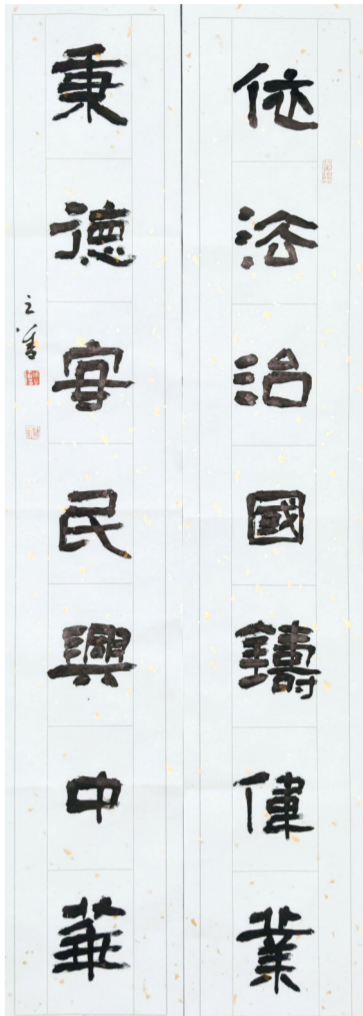 依法治國鑄偉業
秉德安民興中華